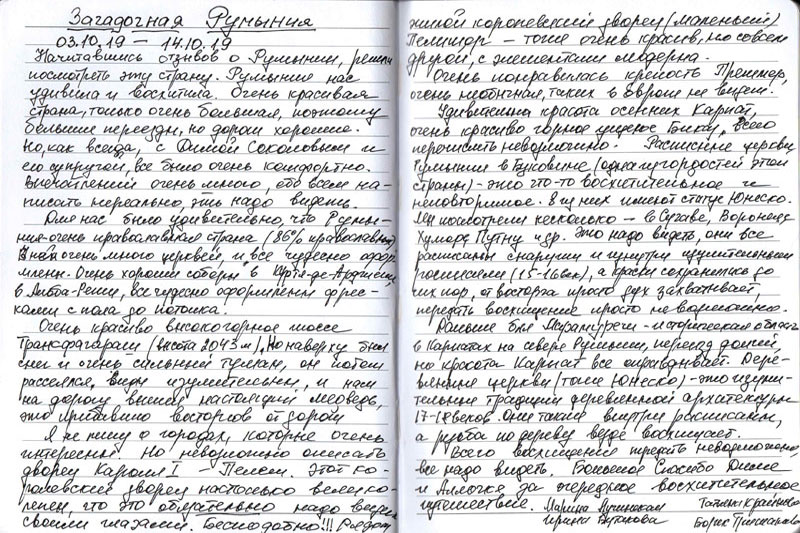 Загадочная Румыния
03.10.19 – 14.10.19
Начитавшись отзывов о Румынии, решили
посмотреть эту страну. Румыния нас
удивила и восхитила. Очень красивая
страна, только очень большая, поэтому
большие переезды, но дороги хорошие.
Но, как всегда, с Димой Соколовым и
его супругой, все было очень комфортно.
Впечатлений очень много, обо всем на-
писать нереально, это надо видеть.
Для нас было удивительно, что Румы-
ния-очень православная страна (86% православных)
В ней очень много церквей, и все чудесно офор
млены. Очень хороши соборы в Куртя-де-Арджеш,
в Алба-Юлии, все чудесно оформлены фрес-
ками с пола до потолка.
Очень красиво высокогорное шоссе
Трансфагараш (высота 2043 м), но наверху был
снег и очень сильный туман, он потом
рассеялся, виды изумительны, и к нам
на дорогу вышел настоящий медведь,
это прибавило восторгов от дороги
Я не пишу о городах, которые очень
интересны. Но невозможно описать
дворец Кароля I – Пелеш. Этот ко-
ролевский дворец настолько велико-
лепен, что это обязательно надо видеть
своими глазами. Бесподобно!!! Рядом
жилой королевский дворец (маленький)
Пелишор – тоже очень красив, но совсем
другой, с элементами модерна.
Очень понравилась крепость Прешмер,
очень необычная, таких в Европе не видели.
Удивительна красота осенних Карпат,
очень красиво горное ущелье Биказ, всего
перечислить невозможно. Расписные церкви
Румынии в Буковине (одна из гордостей этой
страны) – это что-то восхитительное и
неповторимое. 8 из них имеют статус Юнеско.
Мы посмотрели несколько – в Сучаве, Воронец,
Хумора, Путну и др. Это надо видеть, они все
расписаны снаружи и изнутри изумительными
росписями (15-16век), а краски сохранились до
сих пор, от восторга просто дух захватывает,
передать восхищение просто невозможно.
Дальше был Марамуреш – историческая область
в Карпатах на севере Румынии, переезд долгий,
но красота Карпат все оправдывает. Дере-
вянные церкви (тоже Юнеско) – это изуми-
тельные традиции деревянной архитектуры
17-18 веков. Они также внутри расписаны,
а резьба по дереву везде восхищает.
Всего восхищения передать невозможно,
все надо видеть. Большое Спасибо Диме
и Аллочке за очередное восхитительное
путешествие. Марина Татьяна
Ирина Борис